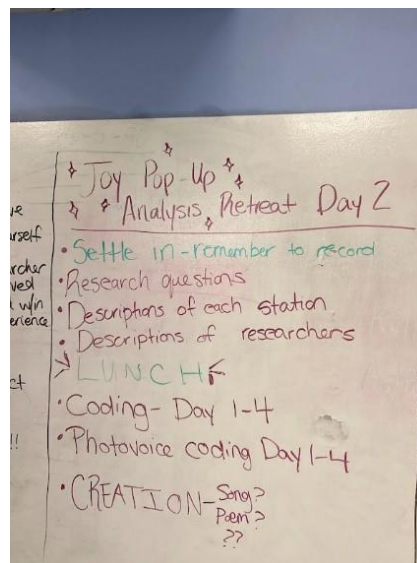 Joy Pop-Up
Analysis Retreat Day 2
• Settle in - remember to record
• Research questions
• Descriptions of each station
• Descriptions of researchers
LUNCH
• Coding - Day 1-4
• Photovoice coding Day 1-4
• CREATION - Song?
Poem?
??
ve
urself
rcher
ved
w/n
erience
ct
!!